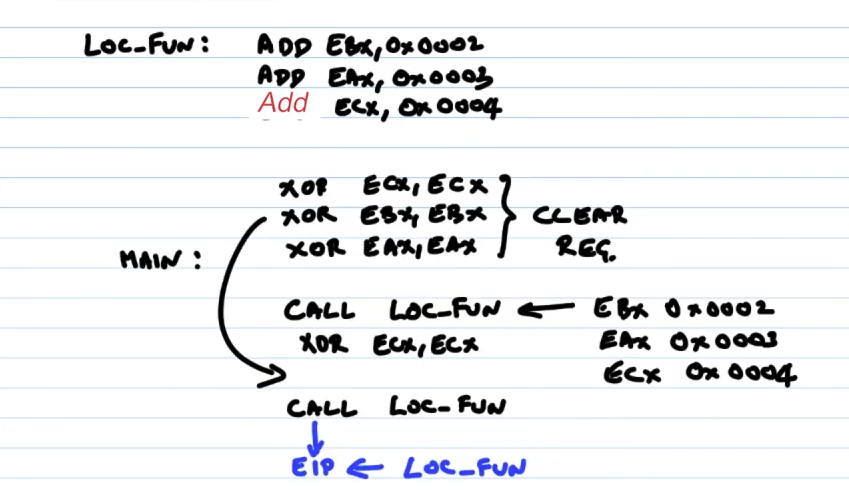 LOC_FUN: ADD EBX, 0x0002
ADD EAX, 0x0003
Add ECX, 0x0004
XOR ECX, ECX
XOR EBX, EBX } CLEAR
XOR EAX, EAX REG.
MAIN:
CALL LOC_FUN ← EBX 0x0002
XOR ECX, ECX EAX 0x0003
ECX 0x0004
CALL LOC_FUN
EIP ← LOC_FUN